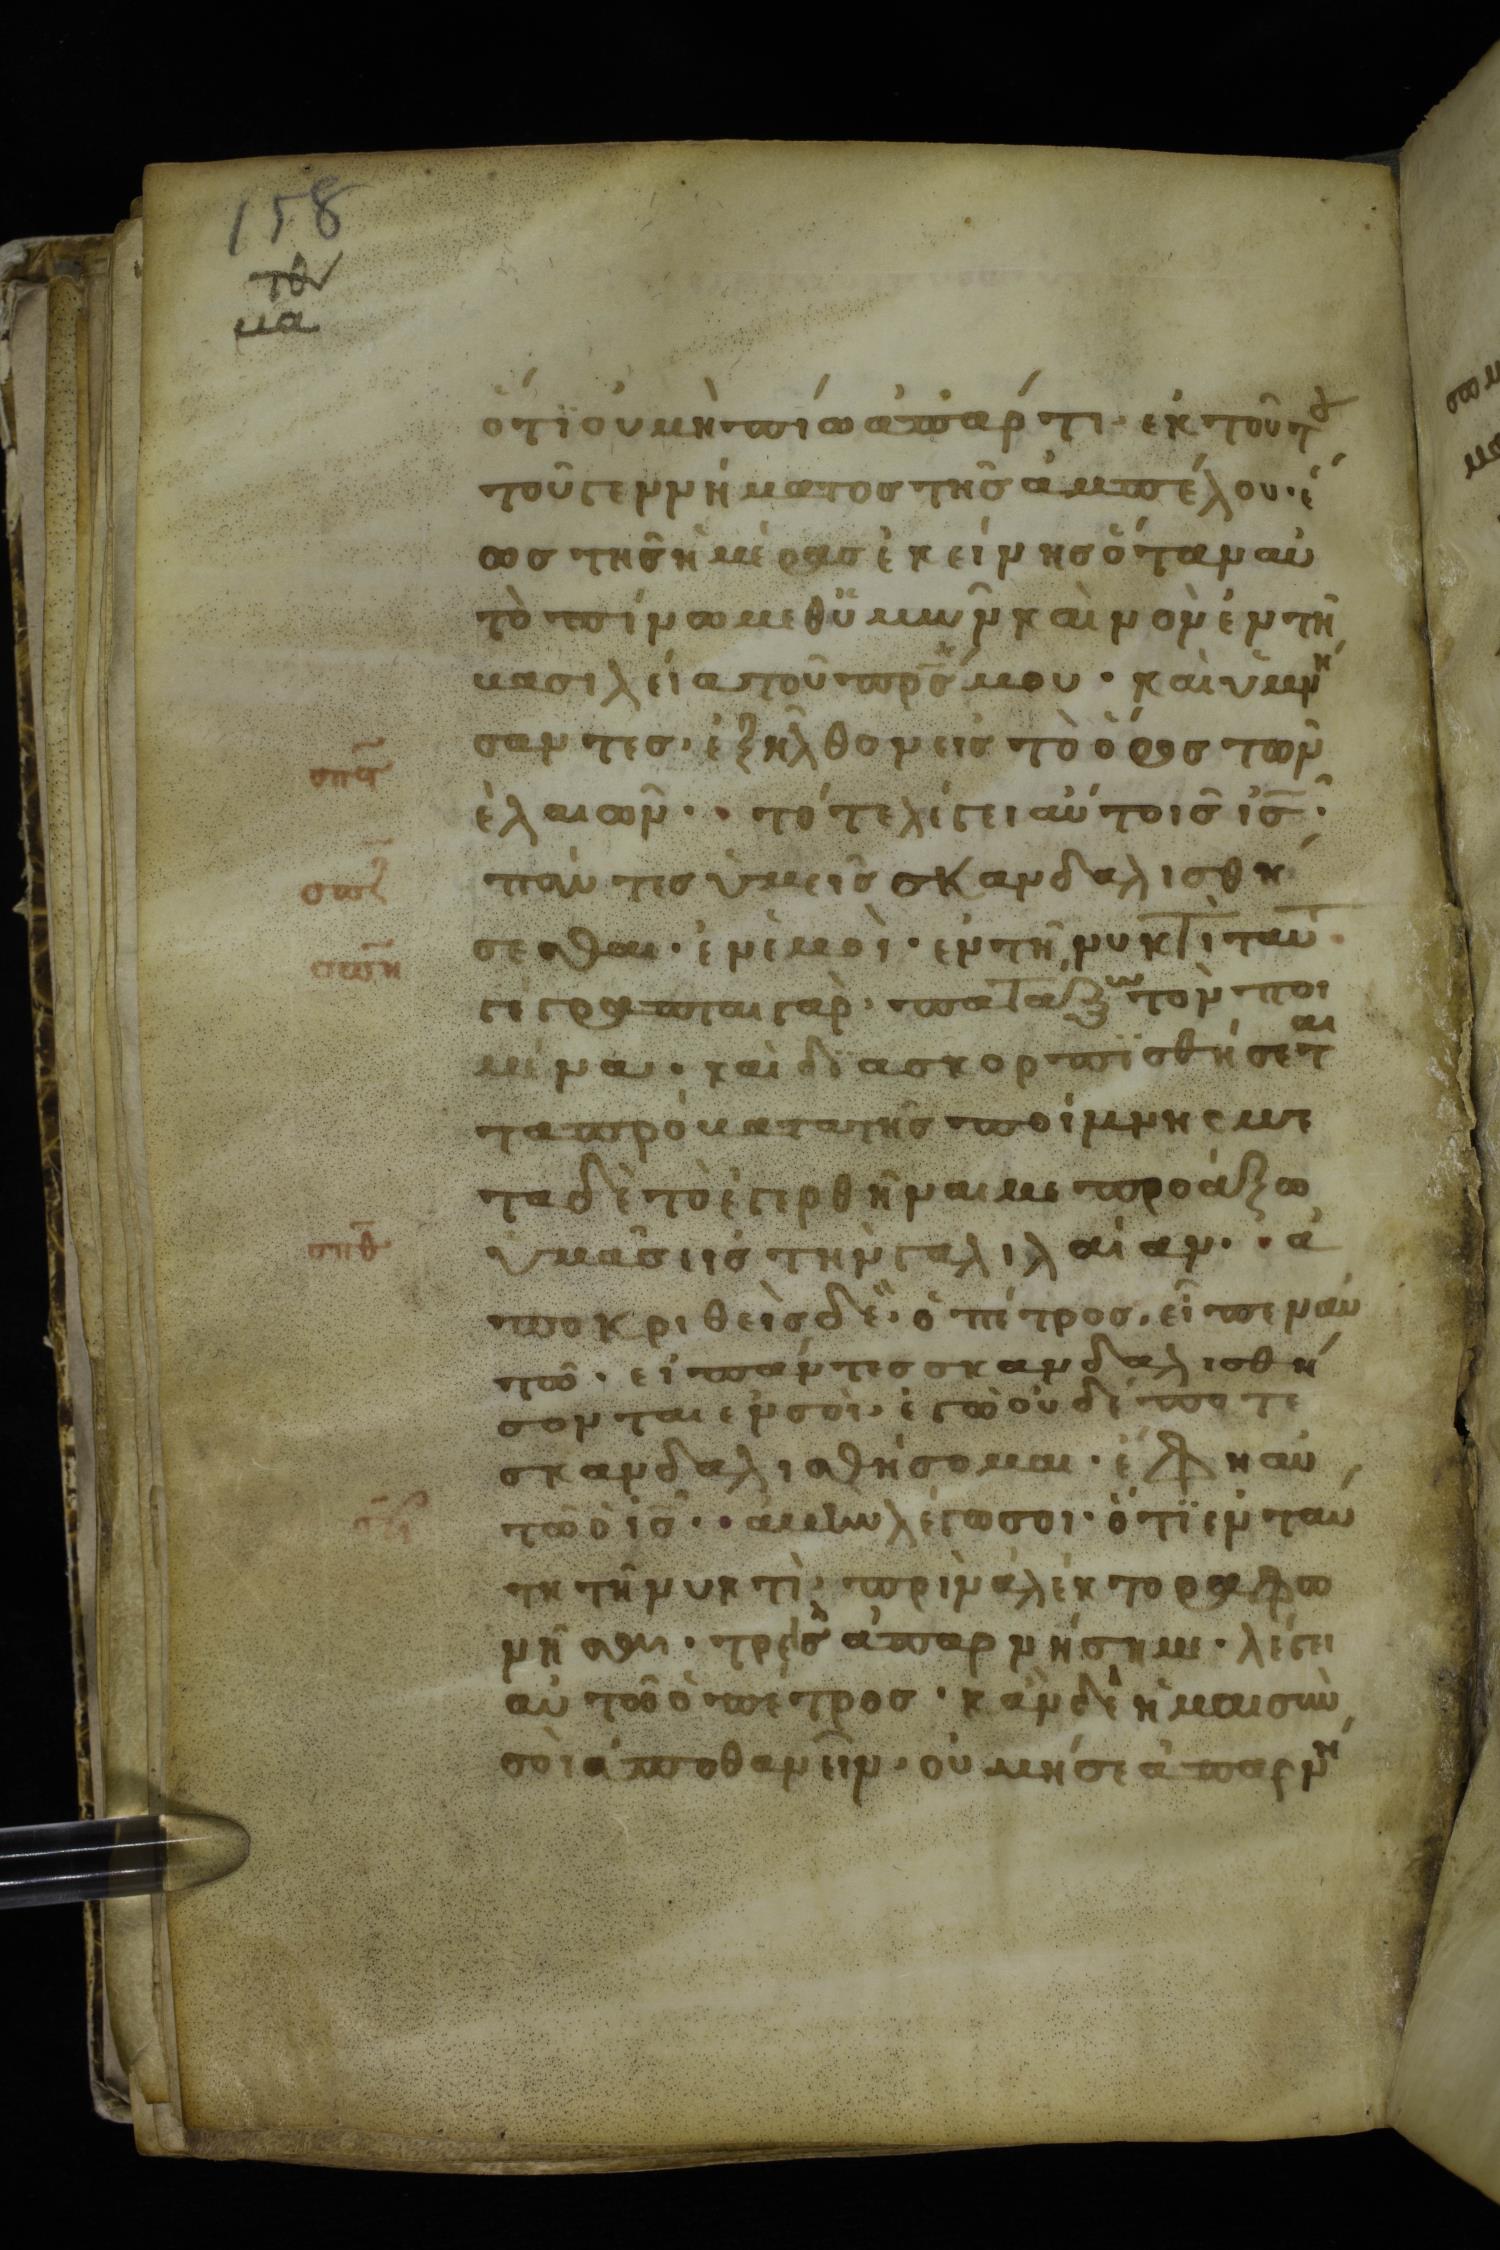 158
ὅτι οὐ μὴ πίω ἀπάρτι· ἐκ τούτ
τοῦ γεννήματος τῆς ἀμπέλου· ἕ
ως τῆς ἡμέρας ἐκείνης ὅταν αὐ
τὸ πίνω μεθ ὑμῶν καινὸν ἐν τῇ
βασιλεία τοῦ πρς μου· καὶ ὑμνή
σαντες· ἐξῆλθον εἰς τὸ ὄρος τῶν
ἐλαιῶν· · τότε λέγει αὐτοῖς ις·
πάντες ὑμεῖς σκανδαλισθή
σεσθαι· ἐν ἐμοὶ· ἐν τῇ νυκτὶ ταύ
γέγραπται γὰρ· πατάξω τὸν ποι
μένα· καὶ διασκορπισθήσεται
τα πρόβατα τῆς ποίμνης με
τα δὲ τὸ ἐγερθῆναι με προάξω
ὑμᾶς εἰς τὴν γαλιλαίαν· · ἀ
ποκριθεὶς δὲ· ὁ πέτρος· εἶπεν αὐ
τῶ· εἰ πάντες σκανδαλισθή
σονται ἐν σοὶ· ἐγὼ οὐδέποτε
σκανδαλισθήσομαι· ἔφη αὐ
τῶ ὁ ις· · ἀμὴν λέγω σοι· ὅτι ἐν ταύ
τη τῇ νυκτὶ· πρὶν ἀλέκτορα φω
νῆσαι· τρεῖς ἀπαρνήση με· λέγει
αὐτῶ ὁ πέτρος· κἂν δέη με σὺν
σοὶ ἀποθανεῖν· οὐ μή σε ἀπαρνή